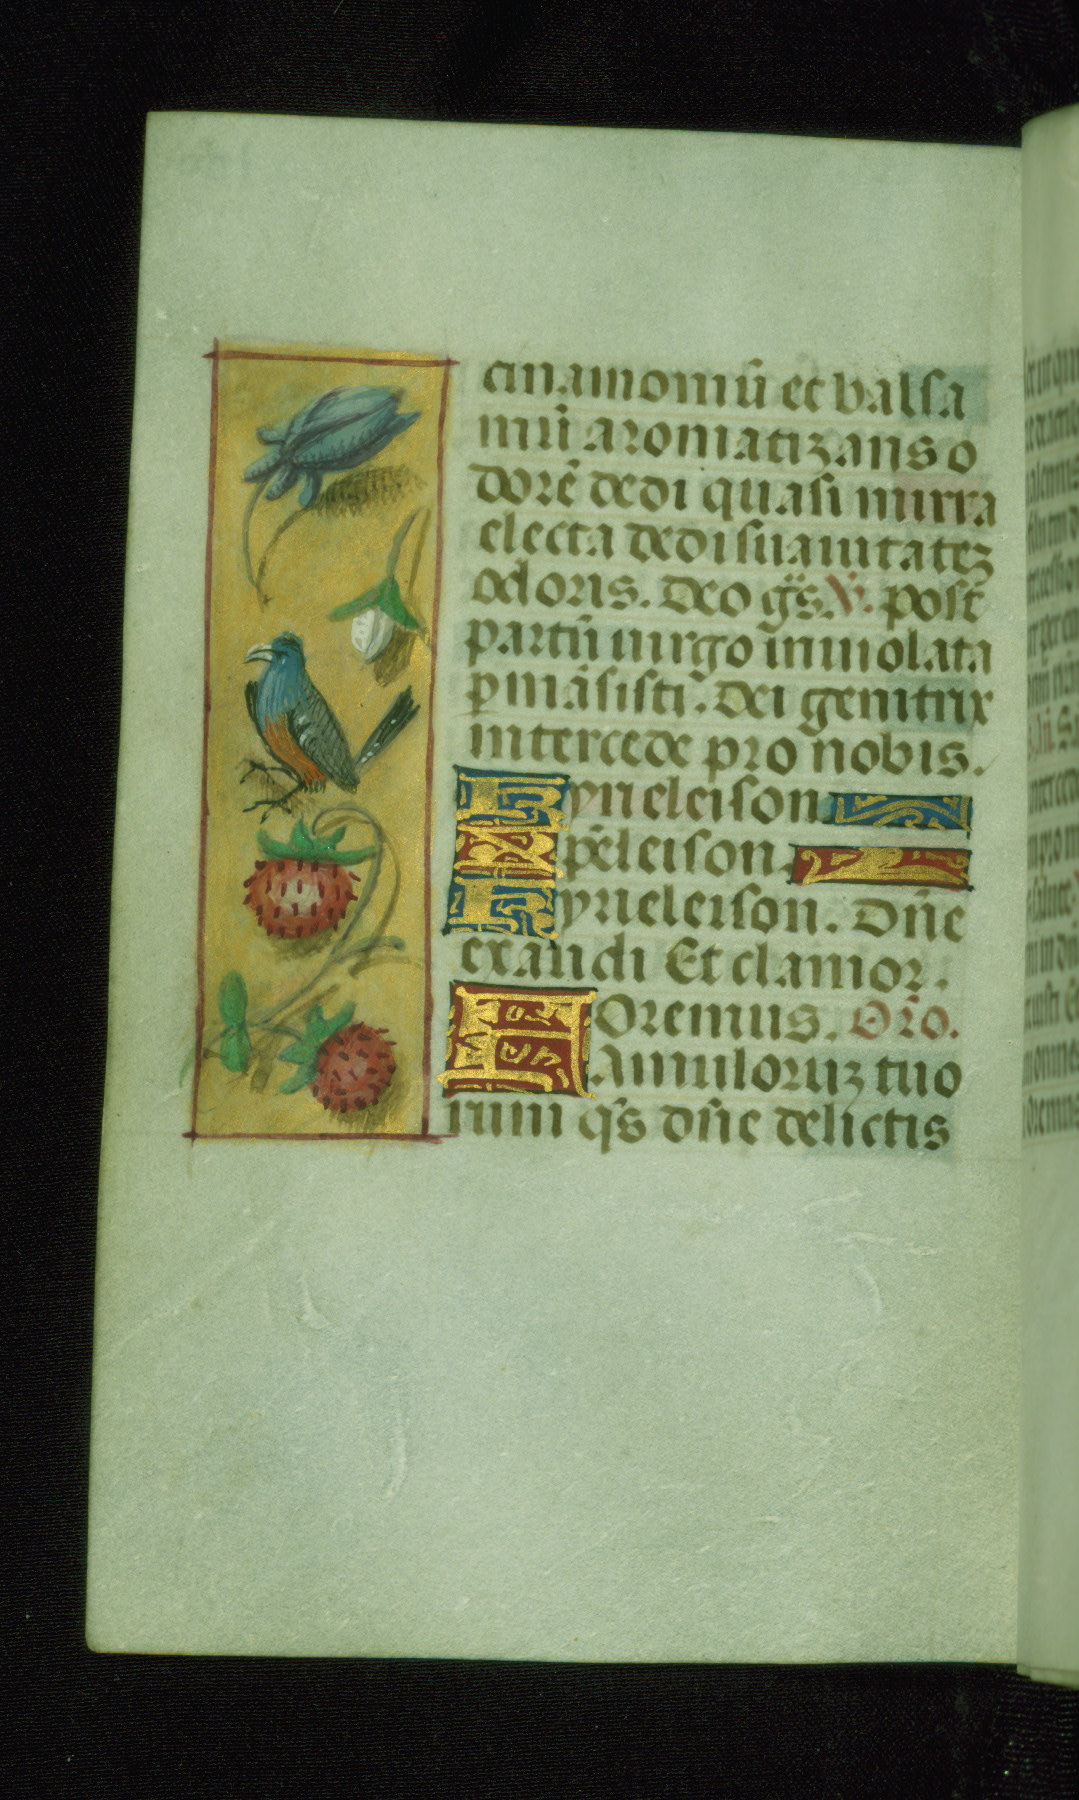 cinamomiū et balsa
mū aromatizans o
dorē dedi quasi mirra
electa dedi suauitatez
odoris. Deo gr̄s. V̄. post
partū uirgo inuiolata
pmāsisti. Dei genitrix
intercede pro nobis.
Kyrieleison
Xp̄eleison.
Kyrieleison. Dn̄e
exaudi Et clamor.
Oremus. Or̄o.
Famuloruz tuo
rum qs̄ dn̄e delictis